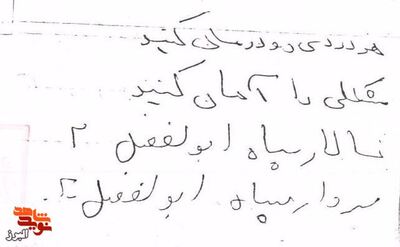 هر دردی رو درمان کنید
مشکلی را آسان کنید
سالار سپاه ابوالفضل ۲
سردار سپاه ابوالفضل ۲.
نوید شاهد
البرز